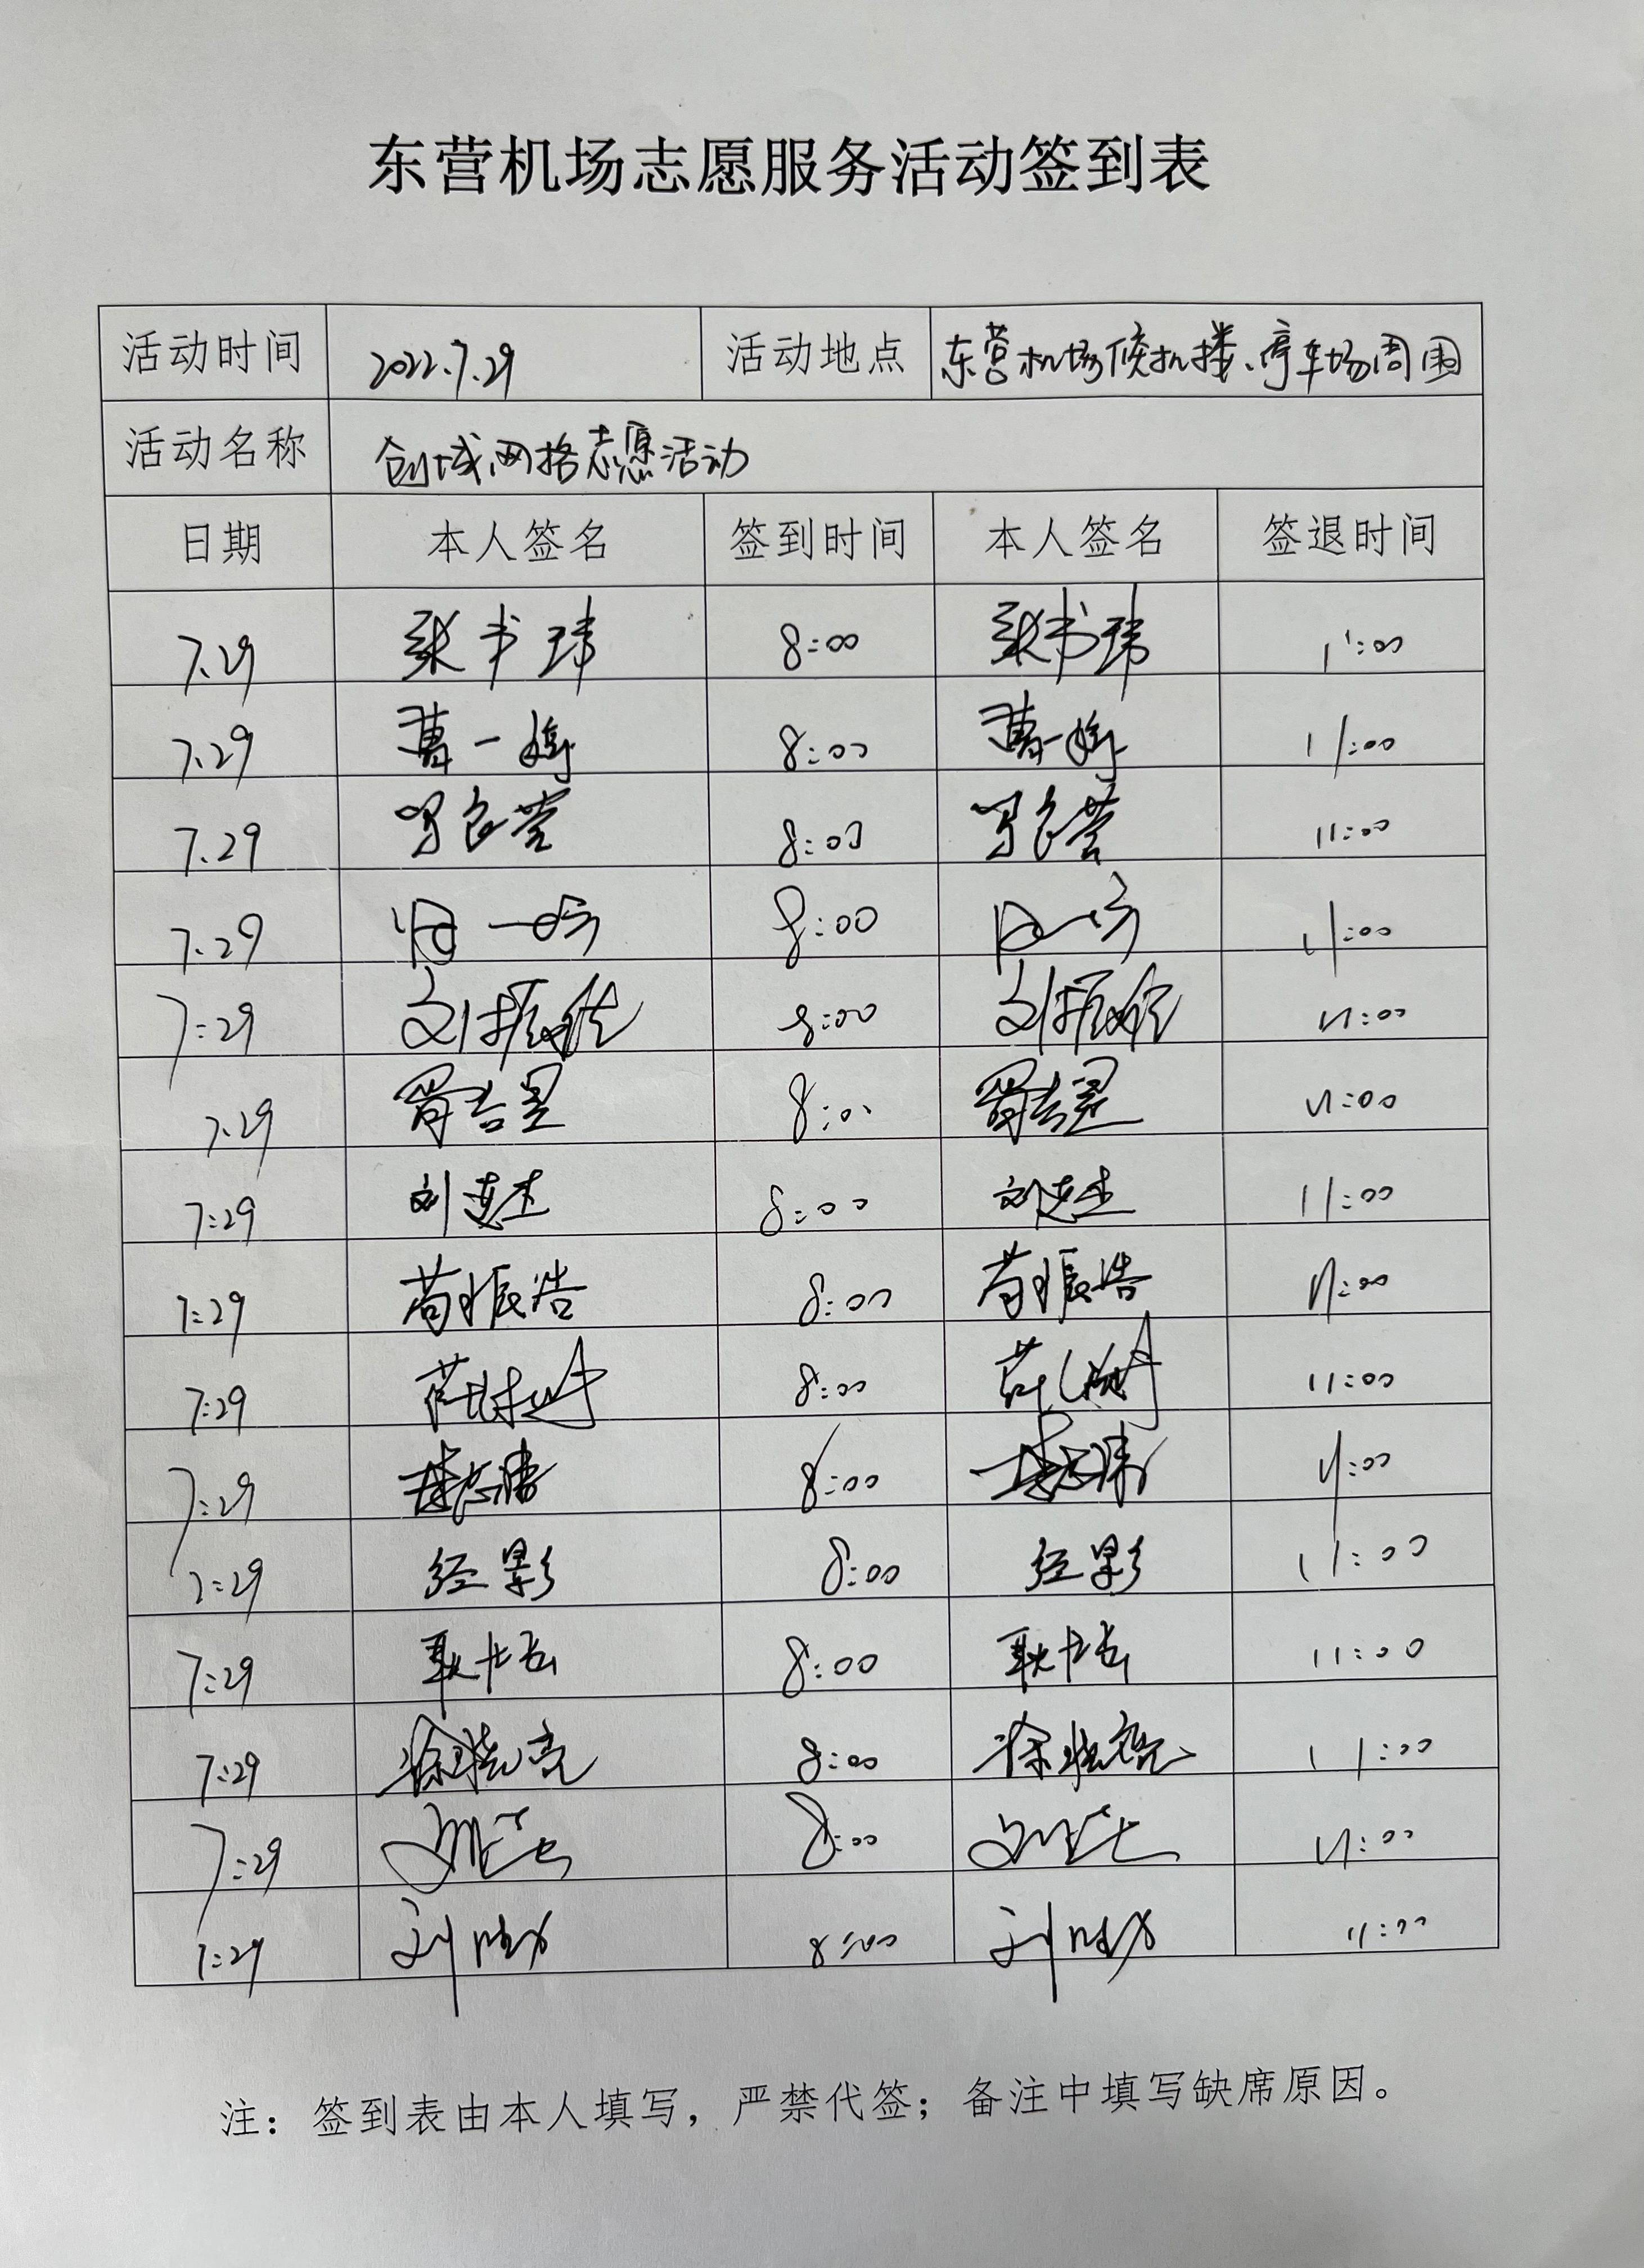 东营机场志愿服务活动签到表
活动时间 2022.7.29 活动地点 东营机场候机楼、停车场周围
活动名称 创城网格志愿活动
日期 本人签名 签到时间 本人签名 签退时间
7.29 张书玮 8:00 张书玮 11:00
7.29 曹一婷 8:00 曹一婷 11:00
7.29 8:00 11:00
7.29 8:00 11:00
7:29 刘振 8:00 刘振 11:00
7.29 8:00 11:00
7:29 刘连杰 8:00 刘连杰 11:00
7:29 苟振浩 8:00 苟振浩 11:00
7:29 8:00 11:00
7:29 8:00 11:00
7:29 经影 8:00 经影 11:00
7:29 耿 8:00 耿 11:00
7:29 徐晓亮 8:00 徐晓亮 11:00
7:29 8:00 11:00
7:29 刘 8:00 刘 11:00
注：签到表由本人填写，严禁代签；备注中填写缺席原因。